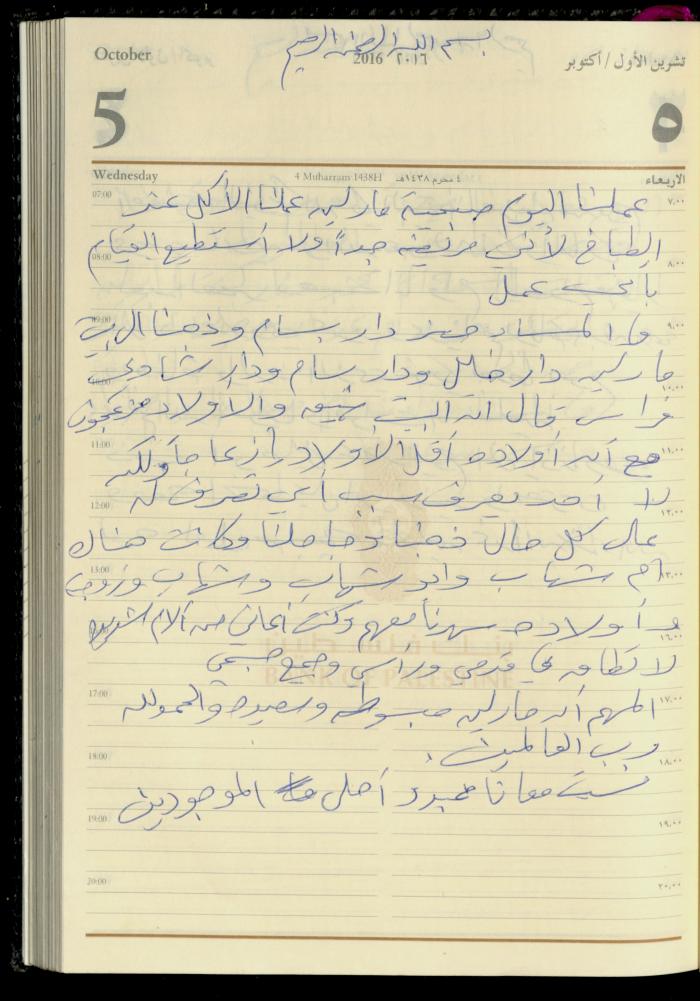 بسم الله الرحمن الرحيم
October
2016 / ٢٠١٦
تشرين الأول / أكتوبر
5
٥
Wednesday
4 Muharram 1438H
٤ محرم ١٤٣٨هـ
الاربعاء
07:00 ٧,٠٠
عملنا اليوم صبحية مارلين عملنا الأكل عند
الطباخ لأنني مريضة جداً ولا أستطيع القيام
08:00 ٨,٠٠
بأي عمل
09:00 ٩,٠٠
المساء دار بسام وذهبنا الى بيت
مارلين دار خليل ودار بسام ودار شادي
10:00 ١٠,٠٠
فراس قال ان البيت والأولاد مزعجون
11:00 ١١,٠٠
مع أن أولاده أقل الأولاد إزعاجاً ولكن
لا أحد يعرف سبب أي تصرف له
12:00 ١٢,٠٠
على كل حال ذهبنا وكانت هناك
13:00 ١٣,٠٠
أم شهاب وابو شهاب وشهاب وزوجته
وأولاده سهرنا معهم وكنت أعاني من آلام شديدة
16:00 ١٦,٠٠
لا تطاق في قدمي ورأسي وجميع جسمي
BANK OF PALESTINE
17:00 ١٧,٠٠
المهم أن مارلين مبسوطة وسعيدة والحمدلله
رب العالمين.
18:00 ١٨,٠٠
أحلى الموجودين
19:00 ١٩,٠٠
20:00 ٢٠,٠٠